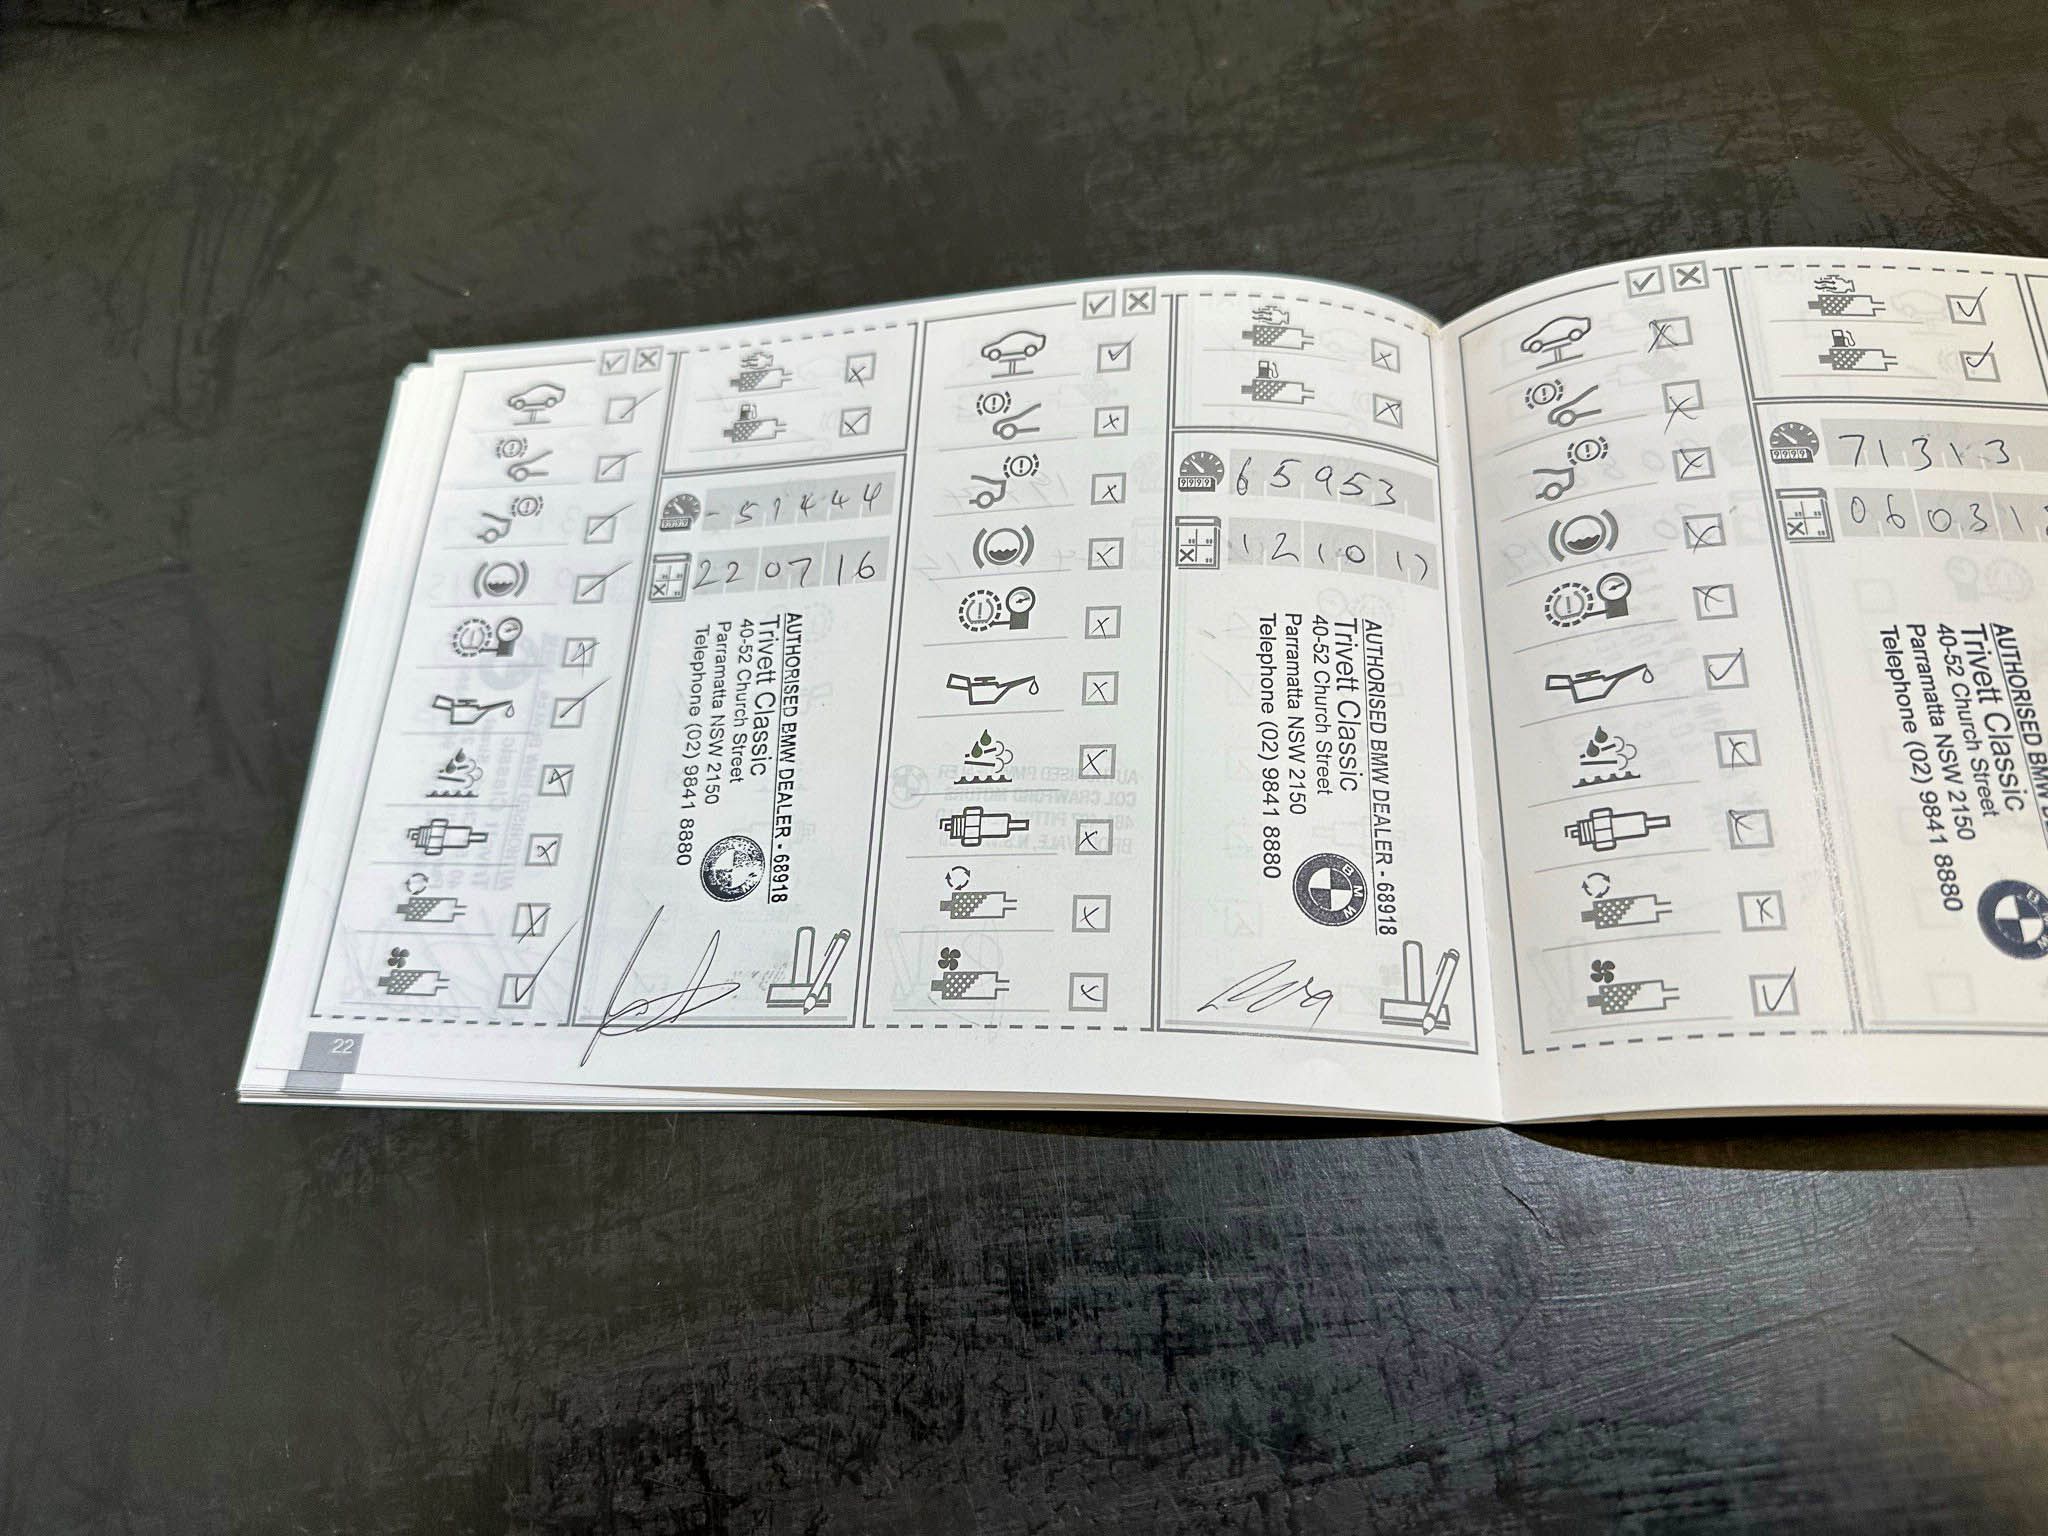 - 5 9 4 4 4
22 07 16
AUTHORISED BMW DEALER - 68918
Trivett Classic
40-52 Church Street
Parramatta NSW 2150
Telephone (02) 9841 8880
65953
12 10 17
AUTHORISED BMW DEALER - 68918
Trivett Classic
40-52 Church Street
Parramatta NSW 2150
Telephone (02) 9841 8880
BMW
71313
06 03 1
AUTHORISED BMW
Trivett Classic
40-52 Church Street
Parramatta NSW 2150
Telephone (02) 9841 8880
22